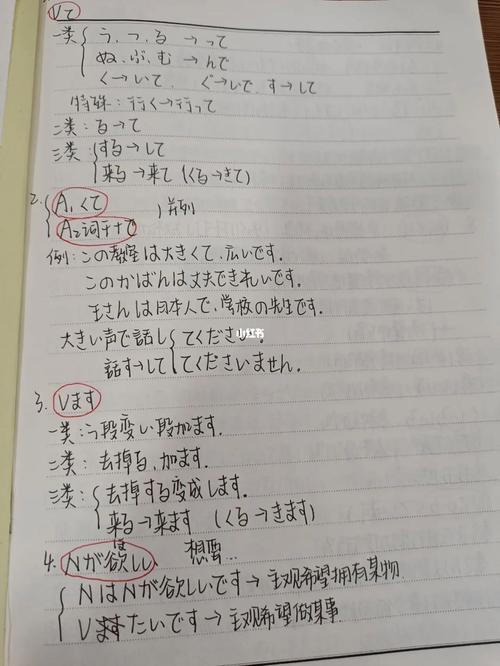 Vて
一类 { う、つ、る→って
ぬ、ぶ、む→んで
く→いて、ぐ→いで、す→して
特殊：行く→行って
二类：る→て
三类：{ する→して
来る→来て (くる→きて)
2. { A₁くて } 并列
A₂词干+で
例：この教室は大きくて、広いです。
このかばんは丈夫できれいです.
王さんは日本人で、学校の先生です.
大きい声で話し { てください。
話す→して てくださいません.
小红书
3. Vます
一类：う段变い段加ます.
二类：去掉る,加ます.
三类：{ 去掉する变成します.
来る→来ます (くる→きます)
4. Nが欲しい 想要...
ほ
{ NはNが欲しいです→主观希望拥有某物
VますたいですS→主观希望做某事